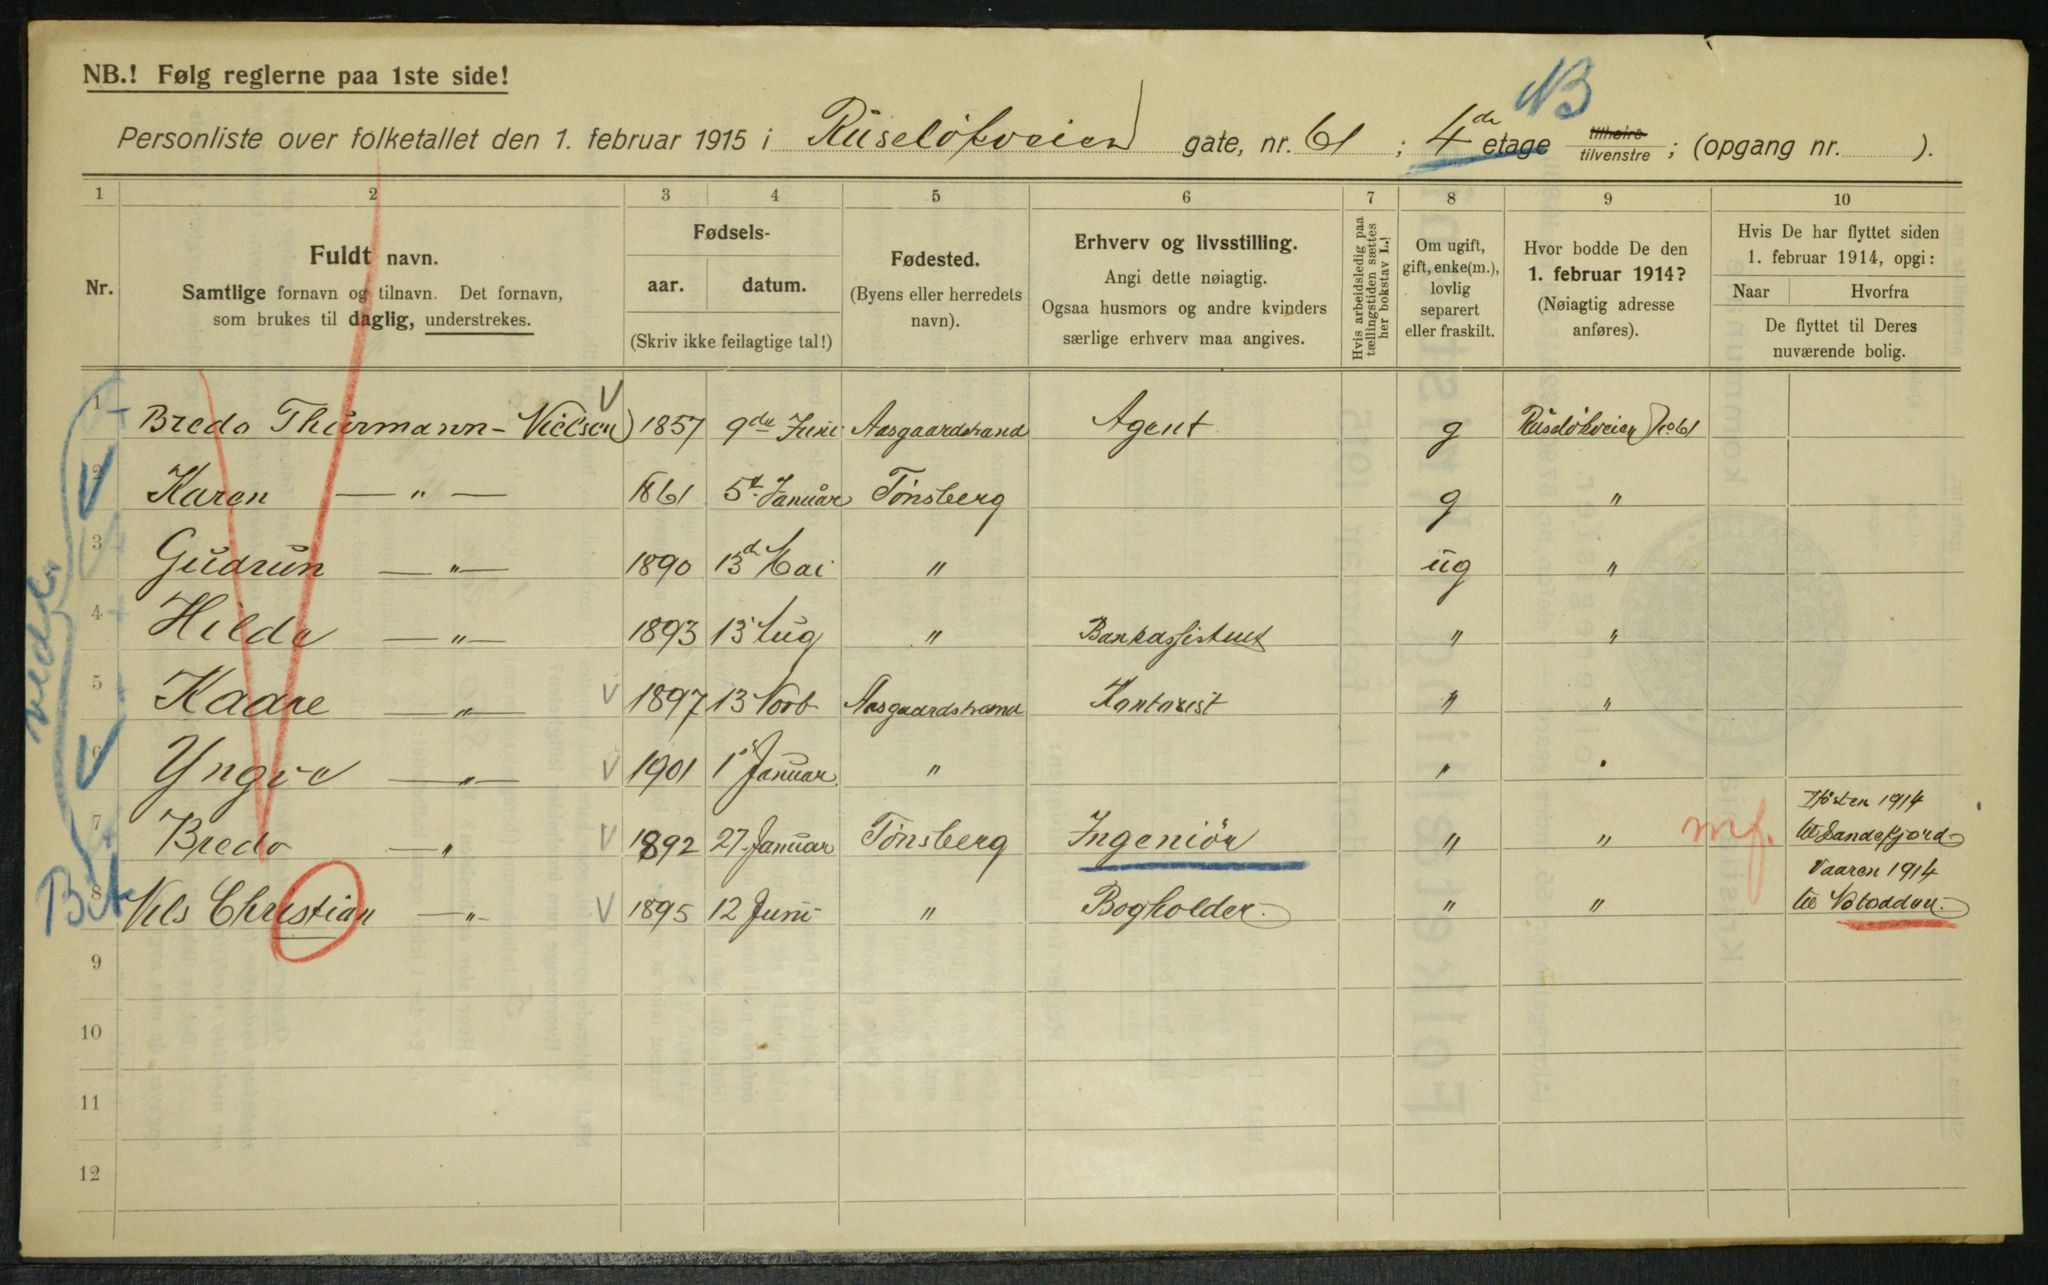 NB.! Følg reglerne paa 1ste side!
NB
Personliste over folketallet den 1. februar 1915 i Ruseløkveien gate, nr. 61 ; 4de etage tilhøire tilvenstre ; (opgang nr. ).
1 2 3 4 5 6 7 8 9 10
Nr.
Fuldt navn.
Samtlige fornavn og tilnavn. Det fornavn,
som brukes til daglig, understrekes.
Fødsels-
aar. datum.
(Skriv ikke feilagtige tal!)
Fødested.
(Byens eller herredets
navn).
Erhverv og livsstilling.
Angi dette nøiagtig.
Ogsaa husmors og andre kvinders
særlige erhverv maa angives.
Hvis arbeidsledig paa
tællingstiden sættes
her bokstav L.!
Om ugift,
gift, enke(m.),
lovlig
separert
eller fraskilt.
Hvor bodde De den
1. februar 1914?
(Nøiagtig adresse
anføres).
Hvis De har flyttet siden
1. februar 1914, opgi:
Naar Hvorfra
De flyttet til Deres
nuværende bolig.
1 Bredo Thurmann-Nielsen 1857 9de Juni Aasgaardstrand Agent g Ruseløkveien No 61
2 Karen — " — 1861 5t Januar Tønsberg g "
3 Gudrun — " — 1890 13d Mai " ug "
4 Hilda — " — 1893 13 Aug " Bankassistent " "
5 Kaare — " — 1897 13 Novb Aasgaardstrand Kontorist " "
6 Yngve — " — 1901 1 Januar " " "
7 Bredo — " 1892 27 Januar Tønsberg Ingeniør " " mf. Høsten 1914
til Sandefjord
8 Nils Christian — " — 1895 12 Juni " Bogholder " " Vaaren 1914
til Notodden
9
10
11
12